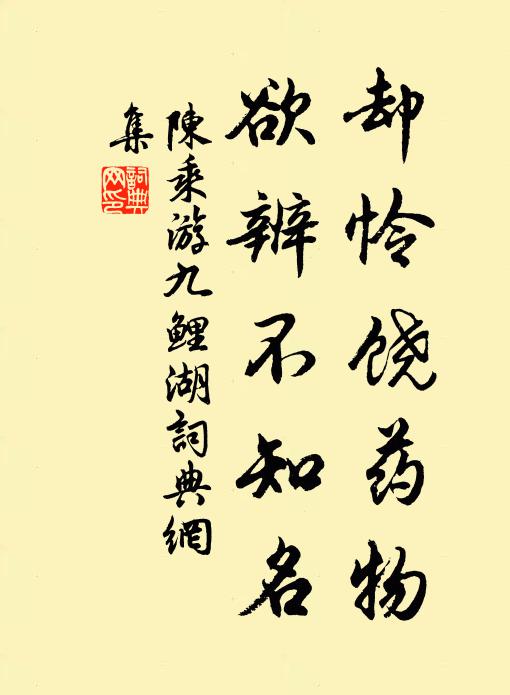 却怜饶药物
欲辨不知名
陳乘游九鯉湖詞典網
集
詞典網